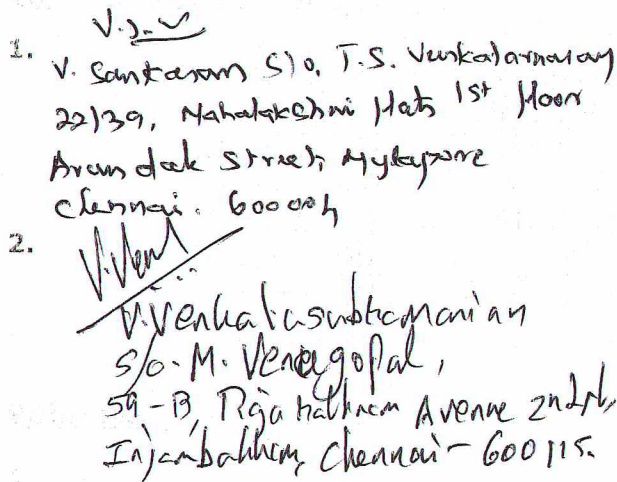 1.
V. Sankaram S/o, T.S. Venkatarnarayan
22/39, Mahalakshmi flats 1st floor
Street, Mylapore
Chennai. 600004
2.
V.Venkatasubramanian
S/o. M. Venugopal,
59-B, Avenue
Injambakkam, Chennai - 600115.